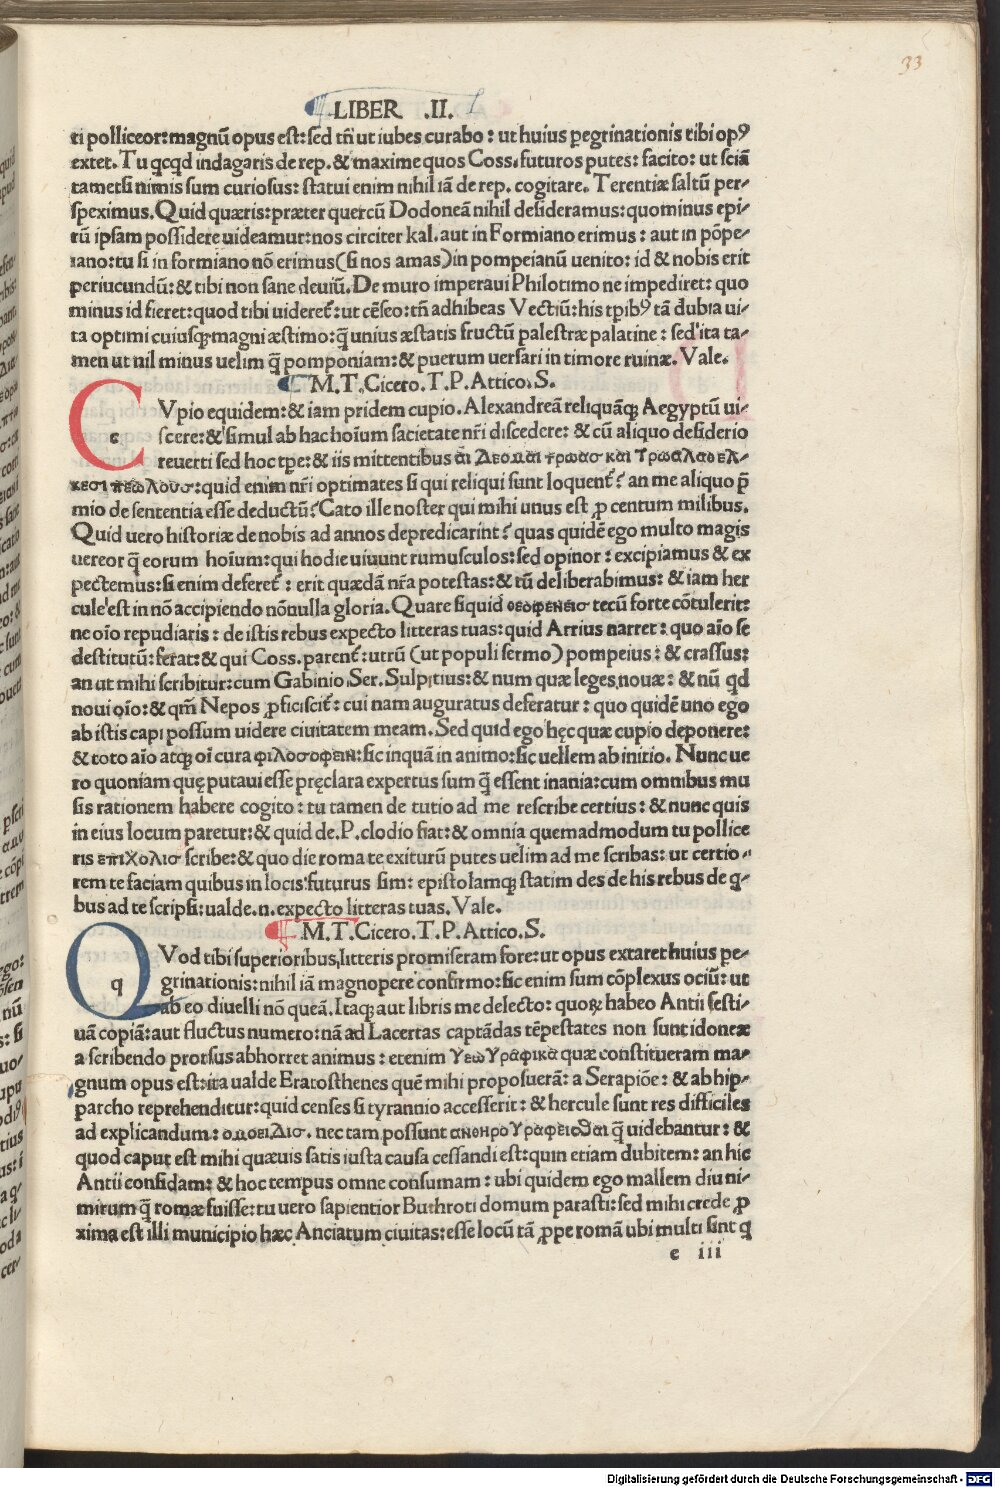 33
LIBER .II.
ti polliceor:magnũ opus est:sed tñ ut iubes curabo: ut huius pegrinationis tibi opꝰ
extet. Tu qcqd indagaris de rep. & maxime quos Coss. futuros putes: facito: ut sciã
tametsi nimis sum curiosus: statui enim nihil iã de rep. cogitare. Terentiæ saltũ per-
speximus. Quid quæris: præter quercũ Dodoneã nihil desideramus:quominus epi-
rũ ipsam possidere uideamur:nos circiter kal. aut in Formiano erimus: aut in põpe-
iano:tu si in formiano nõ erimus(si nos amas)in pompeianũ uenito: id & nobis erit
periucundũ:& tibi non sane deuiũ. De muro imperaui Philotimo ne impediret: quo
minus id fieret:quod tibi uideret̃: ut cẽseo:tñ adhibeas Vectiũ: his tpibꝰ tã dubia ui-
ta optimi cuiusqꝫ magni æstimo: q̃ unius æstatis fructũ palestræ palatine: sed ita ta-
men ut nil minus uelim q̃ pomponiam:& puerum uersari in timore ruinæ. Vale.
M.T.Cicero.T.P.Attico.S.
c Vpio equidem:& iam pridem cupio. Alexandreã reliquãqꝫ Aegyptũ ui-
scere:& simul ab hac hoĩum satietate nr̃i discedere: & cũ aliquo desiderio
reuerti sed hoc tp̃e:& iis mittentibus αι Δεομαι τρωασ και Τρωαλαοελ-
κεσι πεωλουσ:quid enim nr̃i optimates si qui reliqui sunt loquent̃? an me aliquo p̃
mio de sententia esse deductũ? Cato ille noster qui mihi unus est ꝓ centum milibus.
Quid uero historiæ de nobis ad annos depredicarint? quas quidẽ ego multo magis
uereor q̃ eorum hoĩum:qui hodie uiuunt rumusculos:sed opinor: excipiamus & ex
pectemus:si enim deferet̃: erit quædã nr̃a potestas:& tũ deliberabimus: & iam her
cule est in nõ accipiendo nõnulla gloria. Quare siquid θεοφενεισ tecũ forte cõtulerit:
ne oĩo repudiaris: de istis rebus expecto litteras tuas: quid Arrius narret: quo aĩo se
destitutũ: ferat:& qui Coss. parent̃: utrũ (ut populi sermo) pompeius: & crassus:
an ut mihi scribitur:cum Gabinio Ser. Sulpitius:& num quæ leges nouæ: & nũ qd
noui oĩo:& qm̃ Nepos ꝓficiscit̃: cui nam auguratus deferatur: quo quidẽ uno ego
ab istis capi possum uidere ciuitatem meam. Sed quid ego hęc quæ cupio deponere:
& toto aĩo atqꝫ oĩ cura φιλοσοφειν:sic inquã in animo:sic uellem ab initio. Nunc ue
ro quoniam quę putaui esse pręclara expertus sum q̃ essent inania:cum omnibus mu
sis rationem habere cogito: tu tamen de tutio ad me rescribe certius: & nunc quis
in eius locum paretur:& quid de. P. clodio fiat:& omnia quemadmodum tu pollice
ris επιχολισ scribe:& quo die roma te exiturũ putes uelim ad me scribas: ut certio-
rem te faciam quibus in locis futurus sim: epistolamqꝫ statim des de his rebus de q-
bus ad te scripsi: ualde.n. expecto litteras tuas. Vale.
M.T.Cicero.T.P.Attico.S.
q Vod tibi superioribus litteris promiseram fore:ut opus extaret huius pe-
grinationis:nihil iã magnopere confirmo:sic enim sum cõplexus ociũ: ut
ab eo diuelli nõ queã. Itaqꝫ aut libris me delecto: quoꝝ habeo Antii festi-
uã copiã: aut fluctus numero: nã ad Lacertas captãdas tẽpestates non sunt idoneæ
a scribendo prorsus abhorret animus: etenim γεωγραφικα quæ constitueram ma-
gnum opus est:ita ualde Eratosthenes quẽ mihi proposuerã: a Serapiõe: & ab hip-
parcho reprehenditur:quid censes si tyrannio accesserit: & hercule sunt res difficiles
ad explicandum: ομοειΔισ. nec tam possunt ανθηρογραφεισθαι q̃ uidebantur: &
quod caput est mihi quæuis satis iusta causa cessandi est:quin etiam dubitem: an hic
Antii considam: & hoc tempus omne consumam: ubi quidem ego mallem diu ni-
mirum q̃ romæ fuisse:tu uero sapientior Buthroti domum parasti:sed mihi crede ꝓ
xima est illi municipio hæc Anciatum ciuitas:esse locũ tã ꝓpe romã ubi multi sint q
e iii
Digitalisierung gefördert durch die Deutsche Forschungsgemeinschaft - DFG